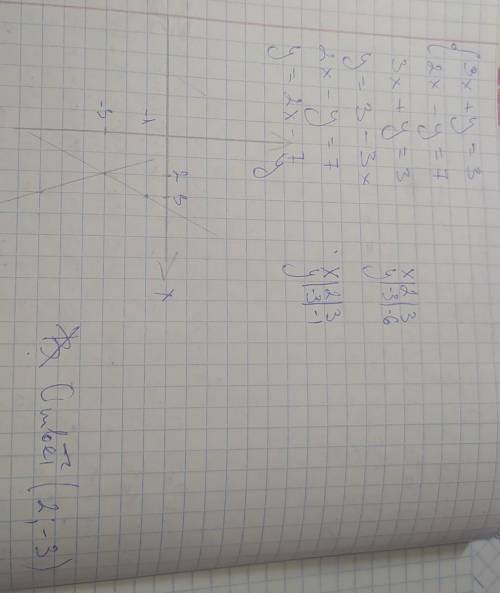 { 3x + y = 3
2x - y = 7
3x + y = 3
y = 3 - 3x
x | 2 | 3
y | -3 | -6
2x - y = 7
y = 2x - 7
x | 2 | 3
y | -3 | -1
y
2 3
x
-1
-3
Ответ (2; -3)